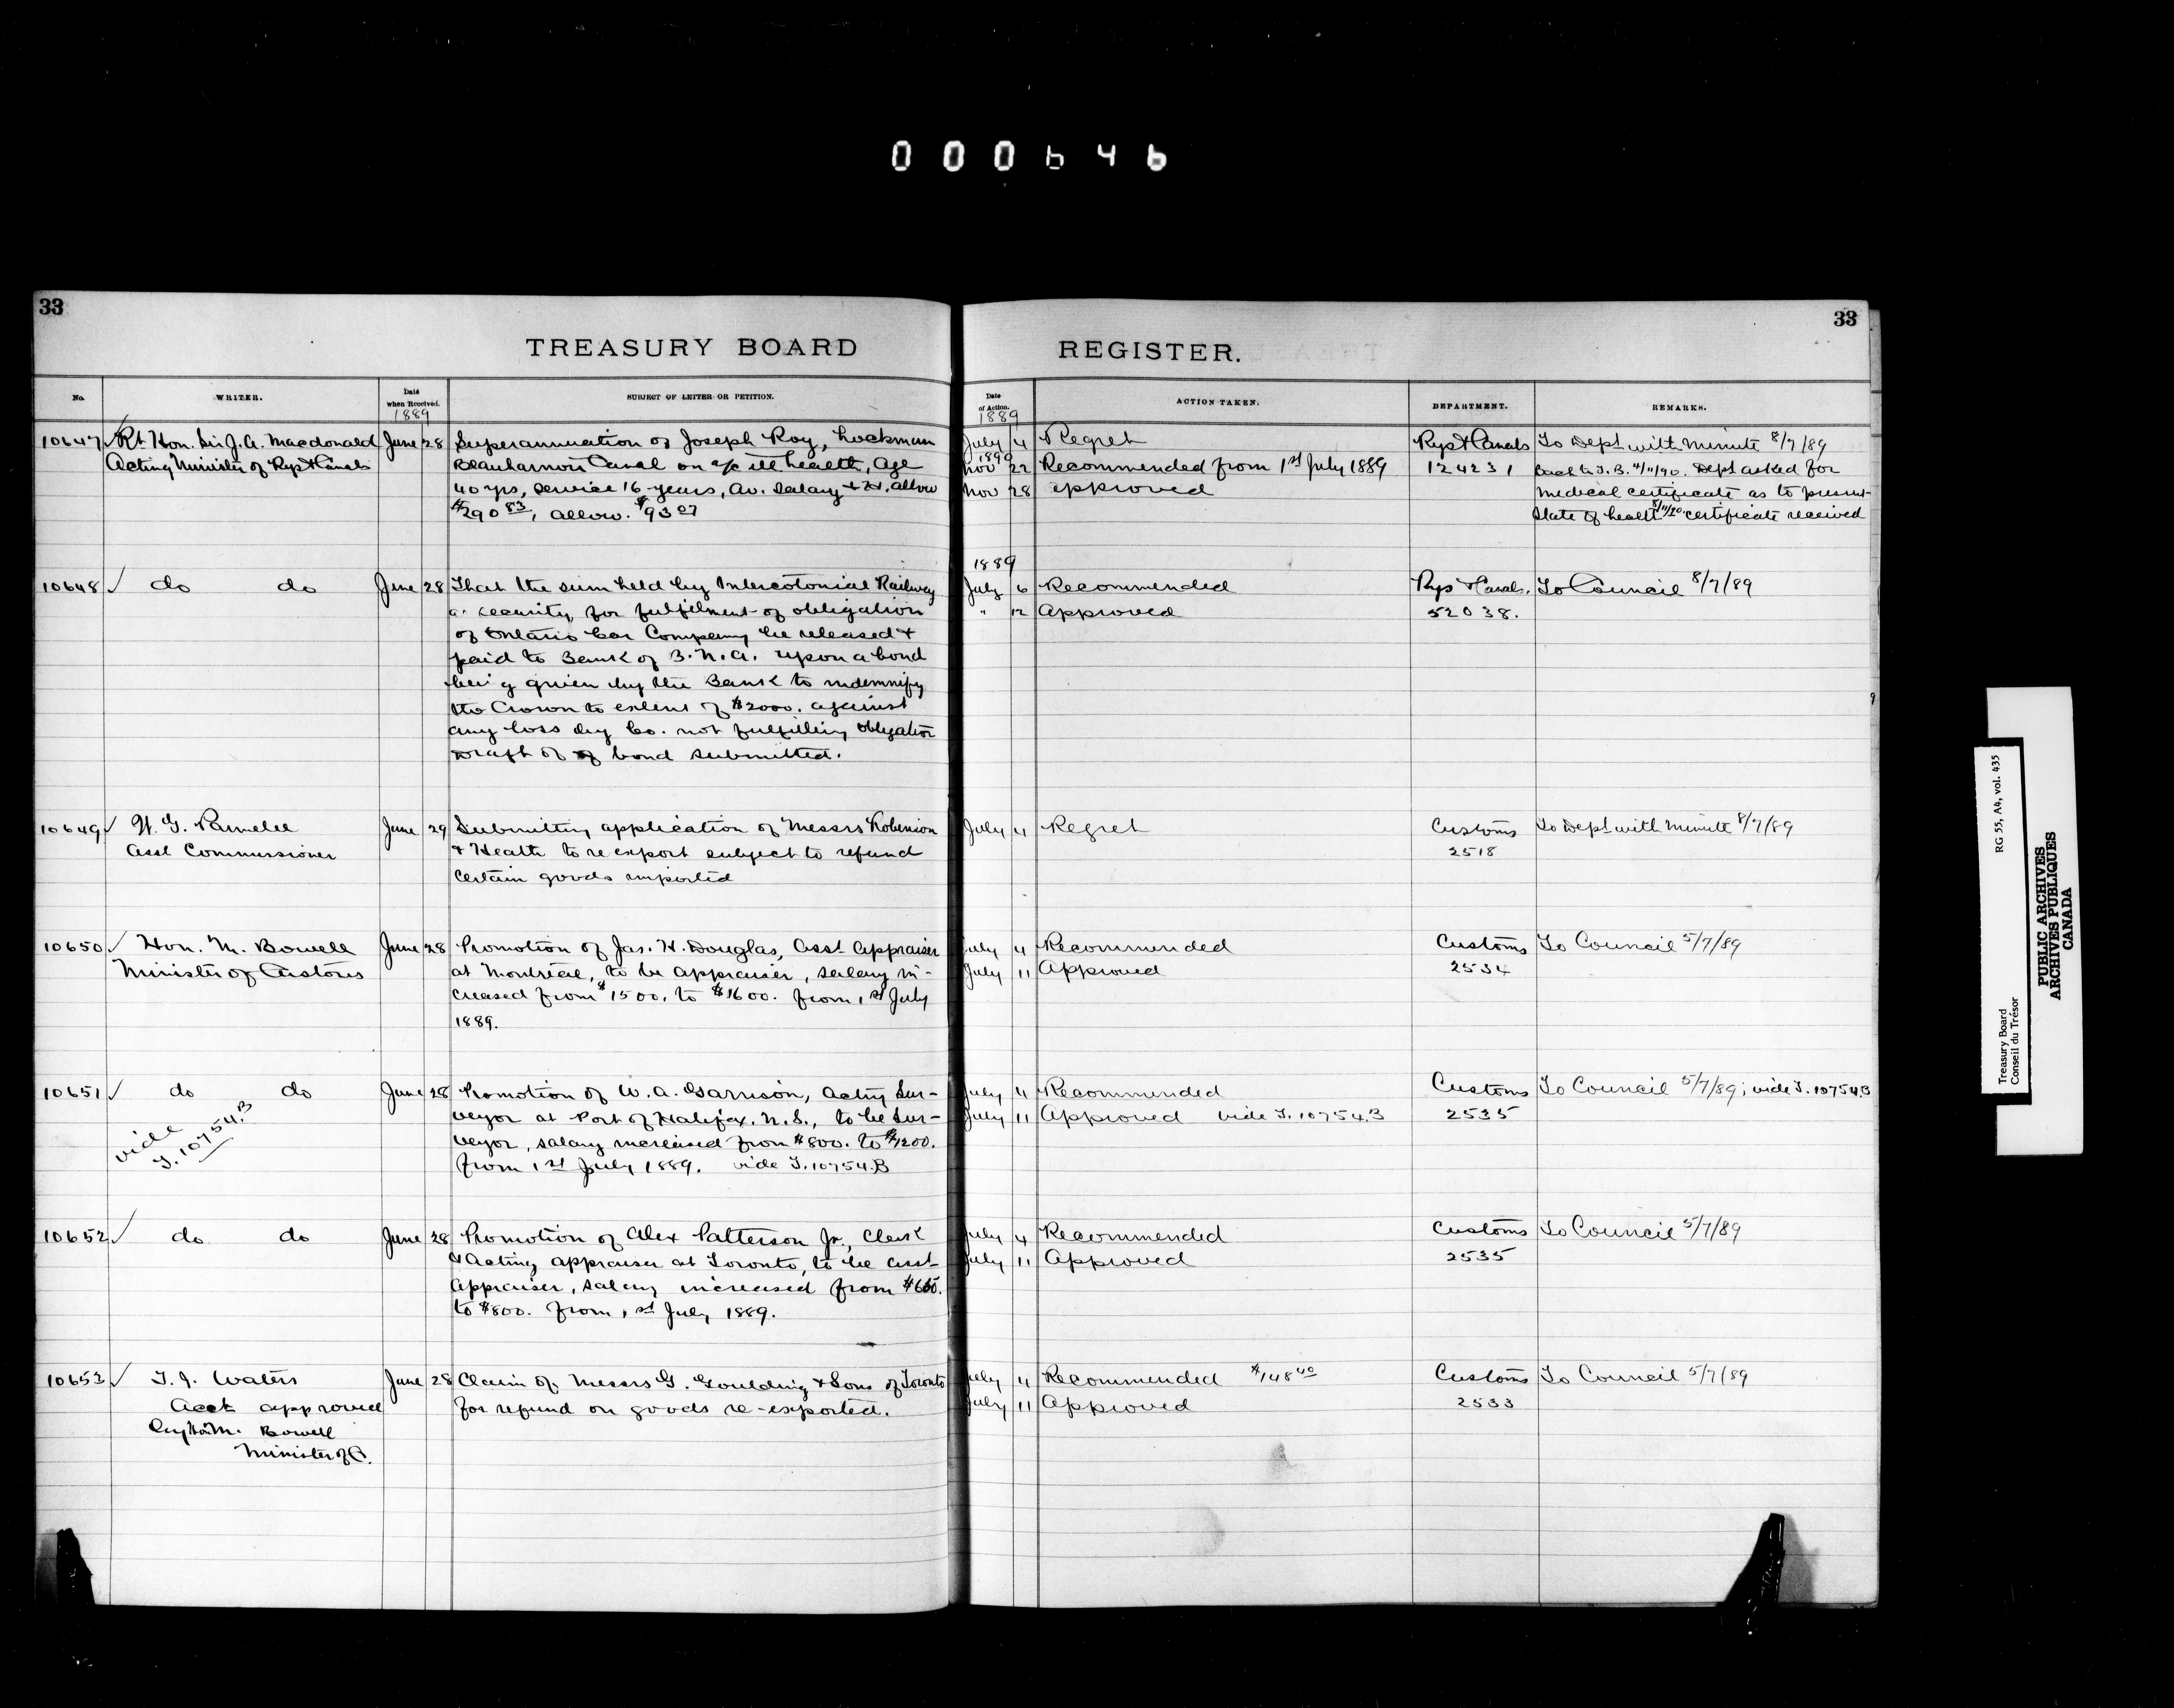 000646
33
33
TREASURY BOARD
REGISTER.
No.
WRITER.
Date when Received.
1889
SUBJECT OF LETTER OR PETITION.
Date of Action.
1889
ACTION TAKEN.
DEPARTMENT.
REMARKS.
10647 Rt. Hon. Sir J. A. Macdonald June 28 Superannuation of Joseph Roy, Lockman July 4 Regret Rys & Canals To Dept with Minute 8/7/89
Acting Minister of Rys & Canals Beauharnois Canal on a/c ill health, Age 1890 Nov 22 Recommended from 1st July 1889 124231 back to T. B. 4/11/90. Dept asked for
40 yrs, service 16 years, Av. Salary allow Nov 28 approved Medical certificate as to present
$290 83, allow. $93 07 State of health certificate received
1889
10648 do do June 28 That the sum held by Intercolonial Railway July 6 Recommended Rys & Canals. To Council 8/7/89
as security for fulfilment of obligation " 12 Approved 52038.
of Ontario Car Company be released &
paid to Bank of B. N. A. upon a bond
being given by the Bank to indemnify
the Crown to extent of $2000. against
any loss by Co. not fulfilling obligation
Draft of bond submitted.
10649 W. G. Parmelee June 29 Submitting application of Messrs Robinson July 4 Regret Customs To Dept with Minute 8/7/89
Asst Commissioner & Heath to re export subject to refund 2518
certain goods imported
10650 Hon. M. Bowell June 28 Promotion of Jas. H. Douglas, Asst Appraiser July 4 Recommended Customs To Council 5/7/89
Minister of Customs at Montreal, to be appraiser, salary in- July 11 Approved 2534
creased from $1500. to $1600. from 1st July
1889.
10651 do do June 28 Promotion of W. A. Garrison, Acting Sur- July 4 Recommended Customs To Council 5/7/89; vide T. 10754B
vide T. 10754.B veyor at Port of Halifax. N. S., to be Sur- July 11 Approved vide T. 10754B 2535
veyor, salary increased from $800. to $1200.
from 1st July 1889. vide T. 10754.B
10652 do do June 28 Promotion of Alex Patterson Jr., Clerk July 4 Recommended Customs To Council 5/7/89
& Acting appraiser at Toronto, to be asst July 11 Approved 2535
Appraiser, salary increased from
to $800. from 1st July 1889.
10653 T. J. Waters June 28 Claim of Messrs G. Goulding & Sons of Toronto July 4 Recommended $148 40 Customs To Council 5/7/89
approved for refund on goods re-exported. July 11 Approved 2533
by Hon M. Bowell
Minister of C.
RG 55, A4, vol. 435
Treasury Board
Conseil du Trésor
PUBLIC ARCHIVES
ARCHIVES PUBLIQUES
CANADA